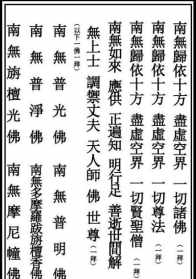 南無歸依十方 盡虛空界 一切諸佛(一拜)
南無歸依十方 盡虛空界 一切尊法(一拜)
南無歸依十方 盡虛空界 一切賢聖僧(一拜)
南無如來 應供 正遍知 明行足 善逝世間解
無上士 調禦丈夫 天人師 佛 世尊(一拜)
(以下一佛一拜)
南無普光佛 南無普明佛
南無普淨佛 南無多摩羅跋旃檀香佛
南無旃檀光佛 南無摩尼幢佛